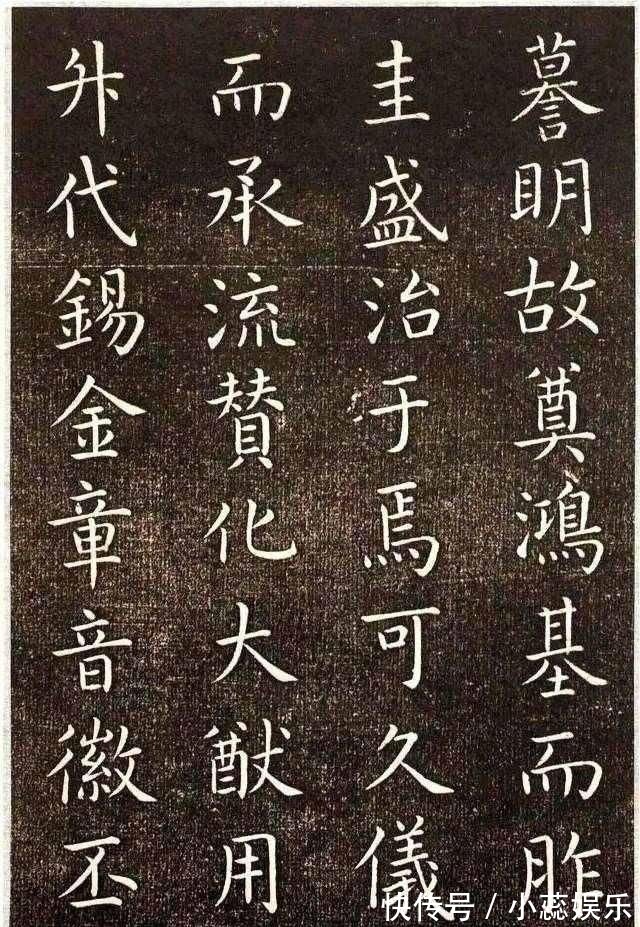 謩明故奠鴻基而胙
圭盛治于焉可久儀
而承流賛化大猷用
升代錫金章音徽丕
快传号 / 小蕊娱乐